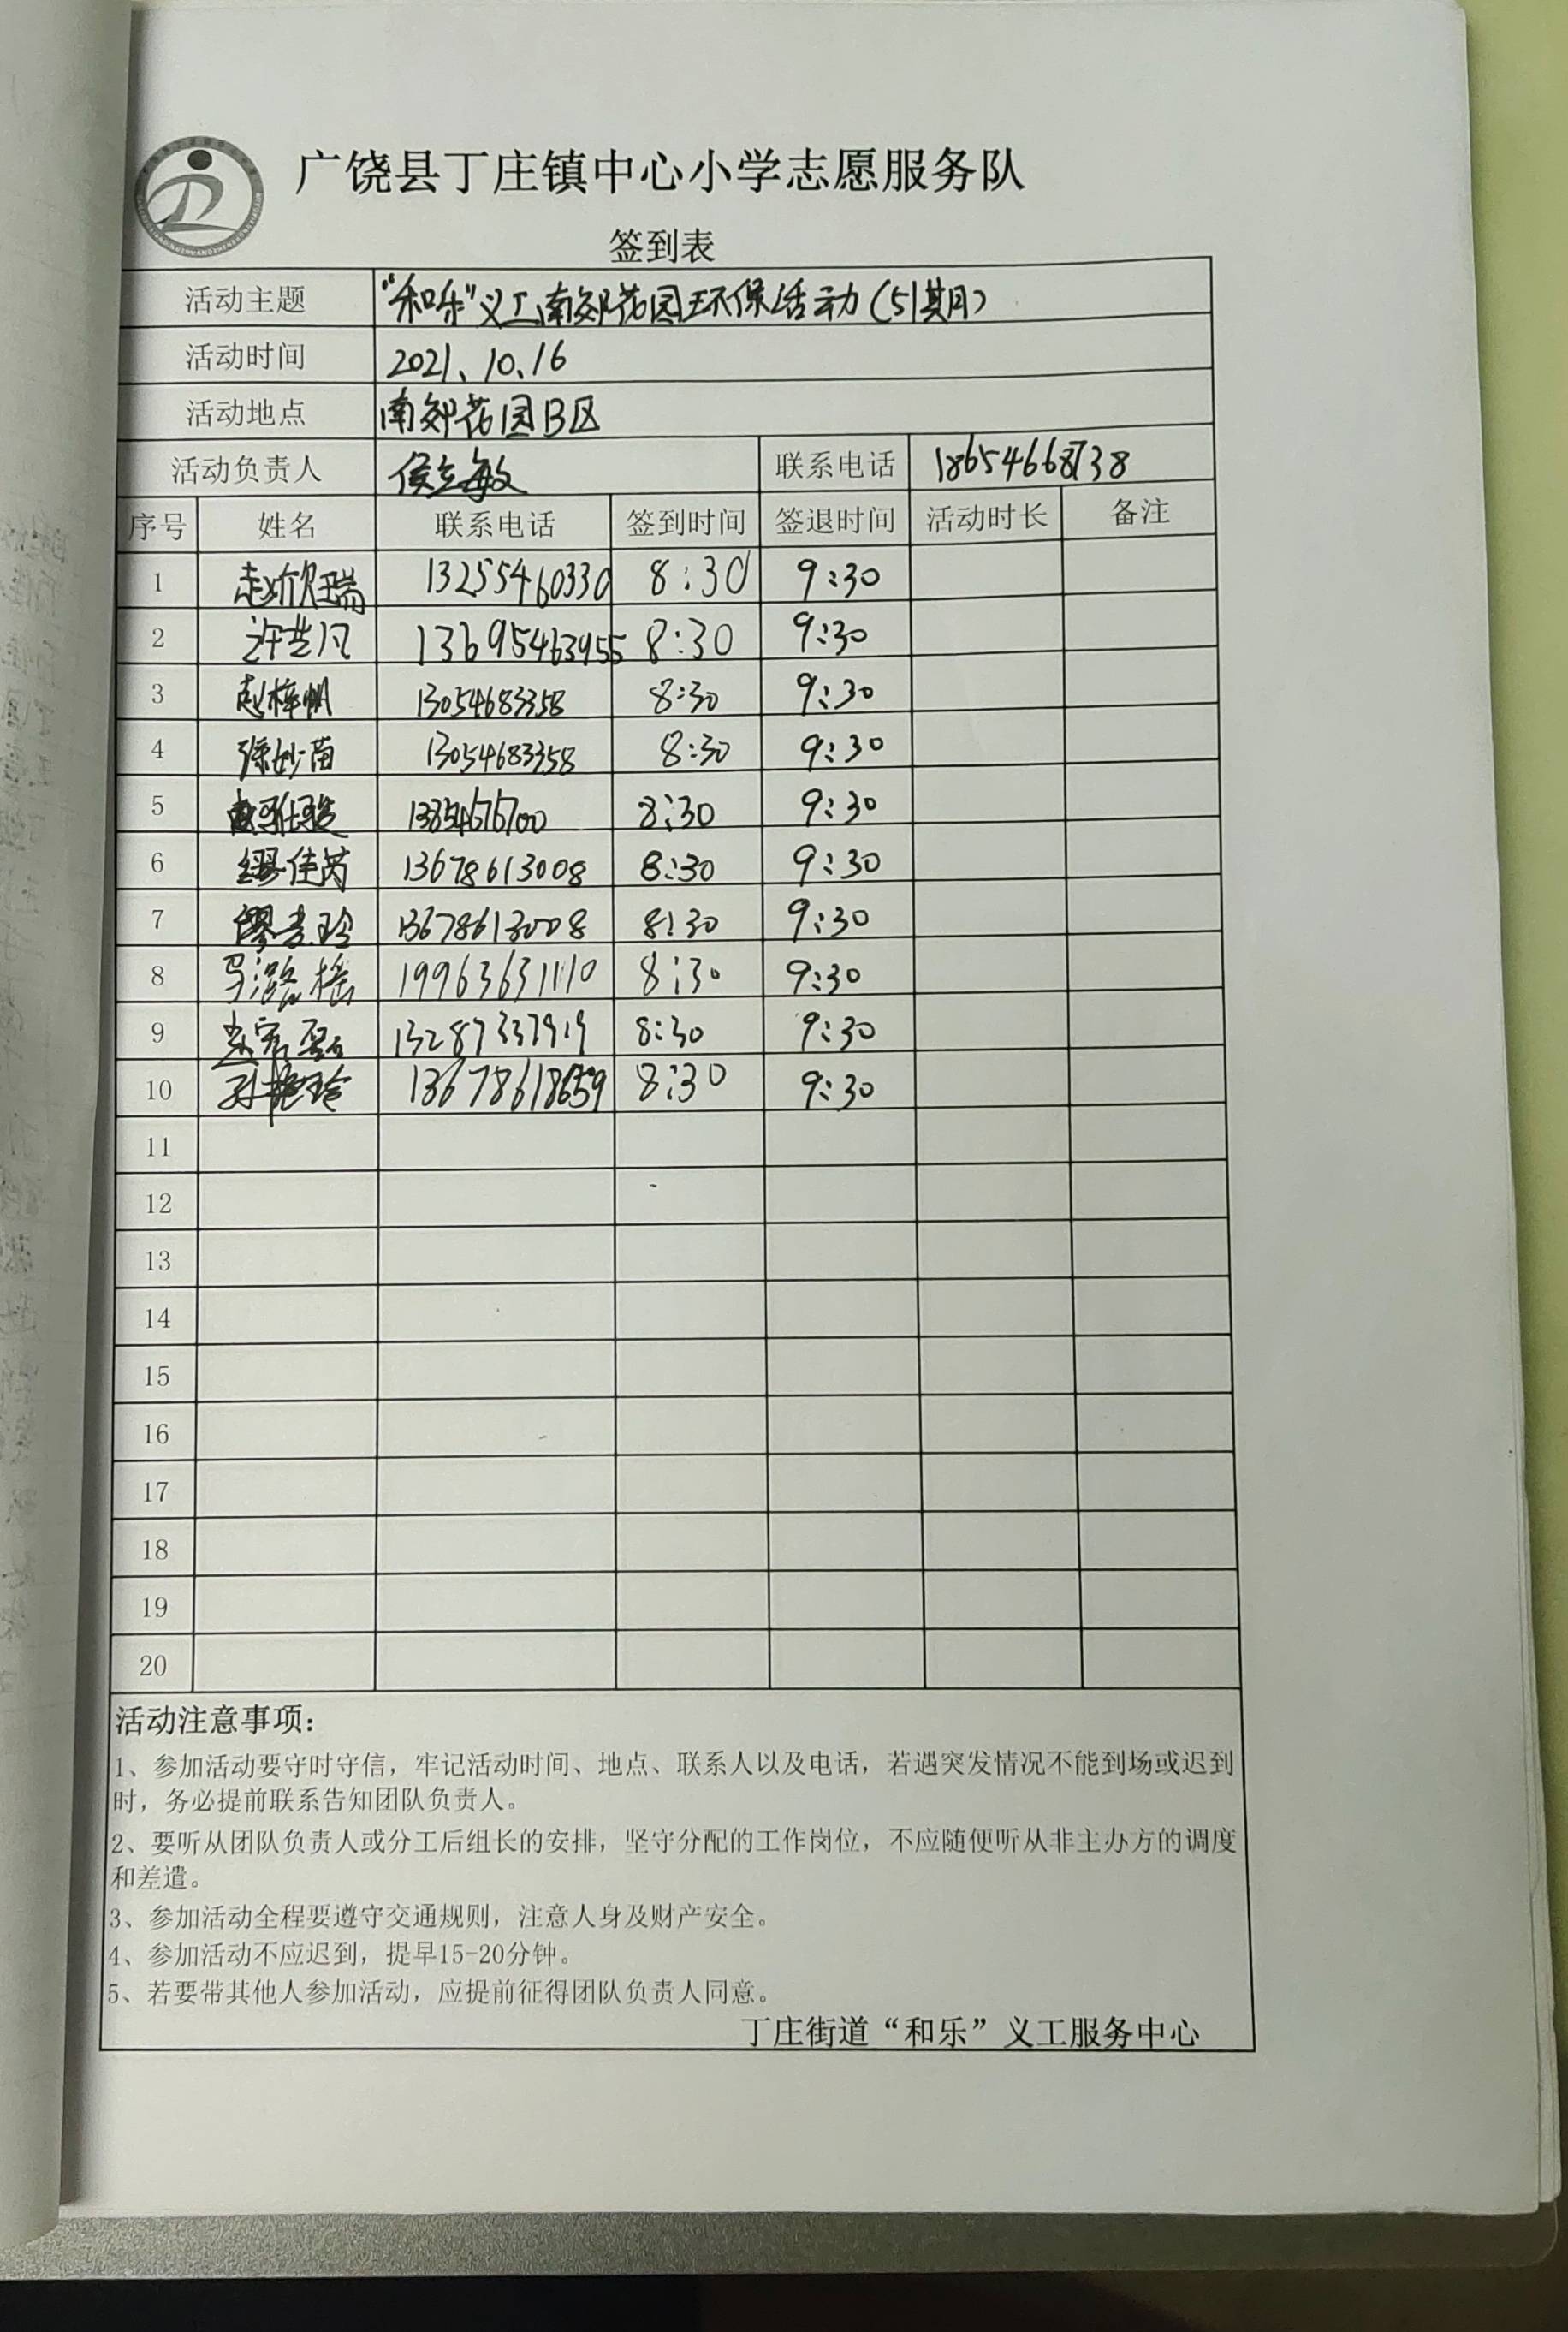 广饶县丁庄镇中心小学志愿服务队
签到表
活动主题 “和乐”义工南郊花园环保活动(51期)
活动时间 2021、10、16
活动地点 南郊花园B区
活动负责人 侯立敏 联系电话 18654668738
序号 姓名 联系电话 签到时间 签退时间 活动时长 备注
1 赵欣瑞 13255460330 8:30 9:30
2 许芸凡 13695463955 8:30 9:30
3 赵梓帆 13054683358 8:30 9:30
4 徐妙苗 13054683358 8:30 9:30
5 8:30 9:30
6 缪佳芮 13678613008 8:30 9:30
7 13678613008 8:30 9:30
8 马潞摇 19963631110 8:30 9:30
9 13287337919 8:30 9:30
10 孙艳玲 13678618659 8:30 9:30
11
12
13
14
15
16
17
18
19
20
活动注意事项：
1、参加活动要守时守信，牢记活动时间、地点、联系人以及电话，若遇突发情况不能到场或迟到
时，务必提前联系告知团队负责人。
2、要听从团队负责人或分工后组长的安排，坚守分配的工作岗位，不应随便听从非主办方的调度
和差遣。
3、参加活动全程要遵守交通规则，注意人身及财产安全。
4、参加活动不应迟到，提早15-20分钟。
5、若要带其他人参加活动，应提前征得团队负责人同意。
丁庄街道“和乐”义工服务中心